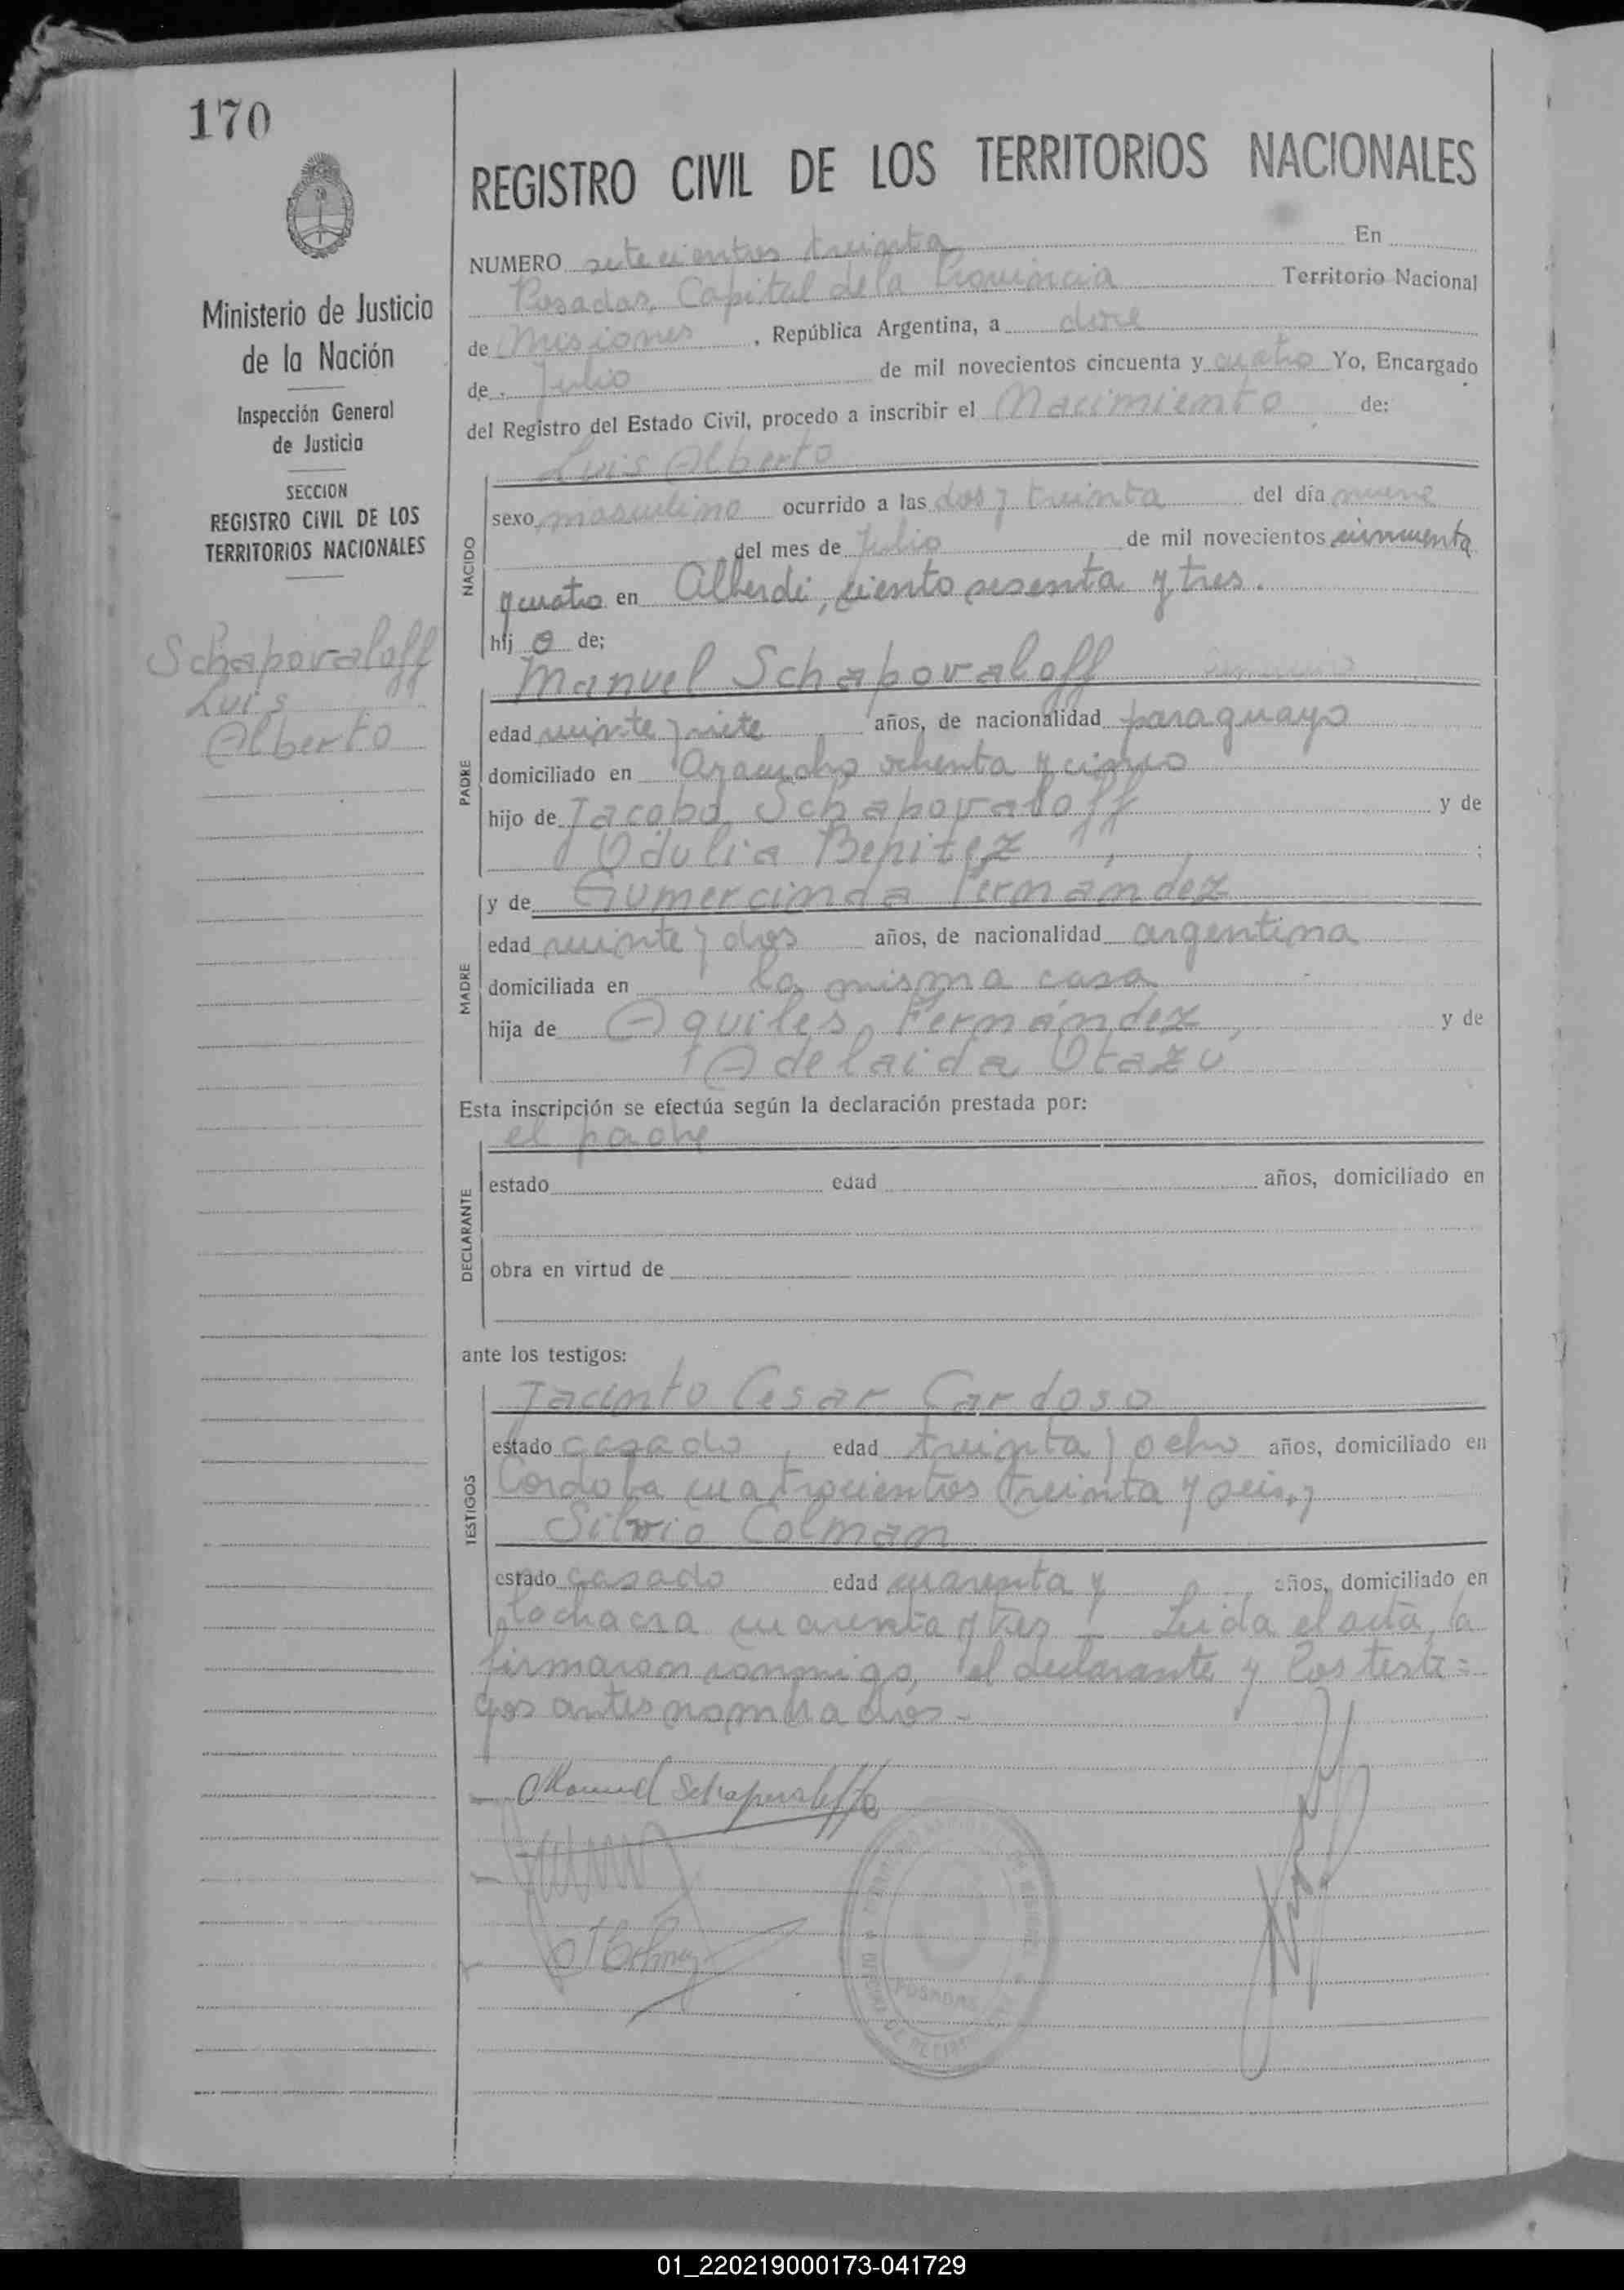 170
REGISTRO CIVIL DE LOS TERRITORIOS NACIONALES
Ministerio de Justicia
de la Nación
Inspección General
de Justicia
SECCION
REGISTRO CIVIL DE LOS
TERRITORIOS NACIONALES
Schapovaloff
Luis
Alberto
NUMERO setecientos treinta En
Posadas, Capital de la Provincia Territorio Nacional
de Misiones, República Argentina, a doce
de Julio de mil novecientos cincuenta y cuatro Yo, Encargado
del Registro del Estado Civil, procedo a inscribir el Nacimiento de:
Luis Alberto
NACIDO
sexo masculino ocurrido a las dos y treinta del día nueve
del mes de Julio de mil novecientos cincuenta
y cuatro en Alberdi, ciento sesenta y tres.
hij o de;
Manuel Schapovaloff
PADRE
edad veinte y siete años, de nacionalidad paraguayo
domiciliado en ochenta y cinco
hijo de Jacobo Schapovaloff y de
Odulia Benitez ;
y de Gumercinda Fernández
MADRE
edad veinte y dos años, de nacionalidad argentina
domiciliada en la misma casa
hija de Aquiles Fernández, y de
Adelaida Otazu
Esta inscripción se efectúa según la declaración prestada por:
el padre
DECLARANTE
estado edad años, domiciliado en
obra en virtud de
ante los testigos:
Jacinto Cesar Cardoso
TESTIGOS
estado casado, edad treinta y ocho años, domiciliado en
Cordoba cuatrocientos treinta y seis, y
Silvio Colman
estado casado edad cuarenta y años, domiciliado en
la chacra cuarenta y tres - Leida el acta, la
firmaron conmigo, el declarante y los testi=
gos antes nombrados.-
Manuel Schapovaloff
POSADAS
01_220219000173-041729